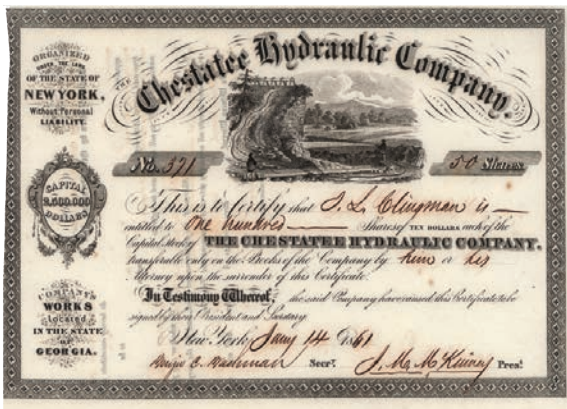 ORGANIZED
UNDER THE LAWS
OF THE STATE OF
NEW YORK,
Without Personal
LIABILITY.
THE
Chestatee Hydraulic Company.
No. 371
50 Shares
CAPITAL
2,500,000
DOLLARS
This is to Certify that T. L. Clingman is
entitled to One hundred Shares of TEN DOLLARS each of the
Capital Stock of THE CHESTATEE HYDRAULIC COMPANY.
transferable only on the Books of the Company by him or his
Attorney upon the surrender of this Certificate
In Testimony Whereof, the said Company have caused this Certificate to be
signed by their President and Secretary
New York Jany 14 1861
COMPANY'S
WORKS
Located
IN THE STATE
OF
GEORGIA.
Secry.
J. M. McKinney Prest.